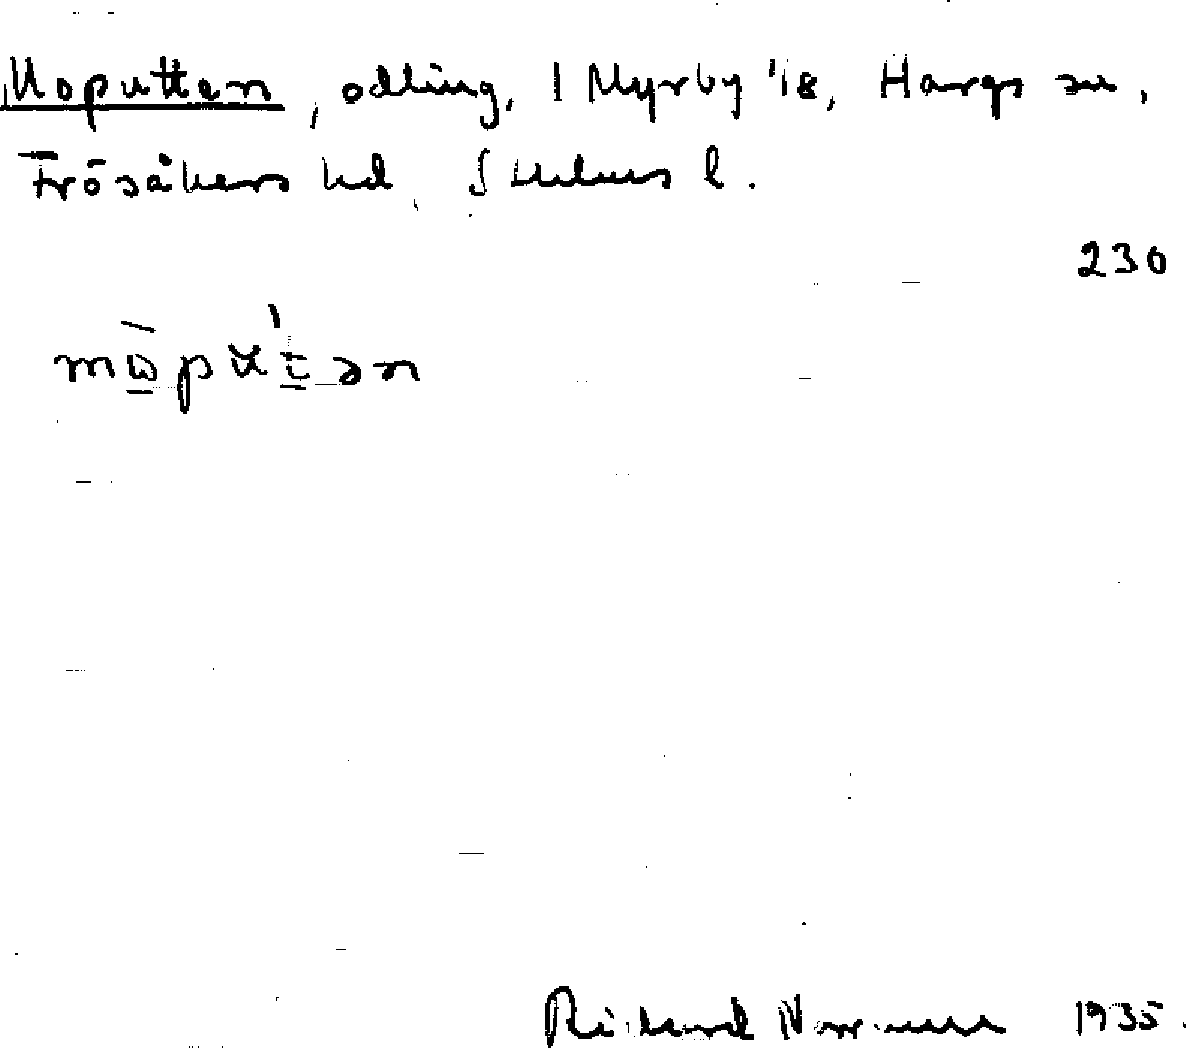 Moputten, odling, i Myrby 1/8, Hargs sn,
Frösåkers hd, Sthlms l.
230
mὼpu̇'tən
Rickard Norrman 1935.